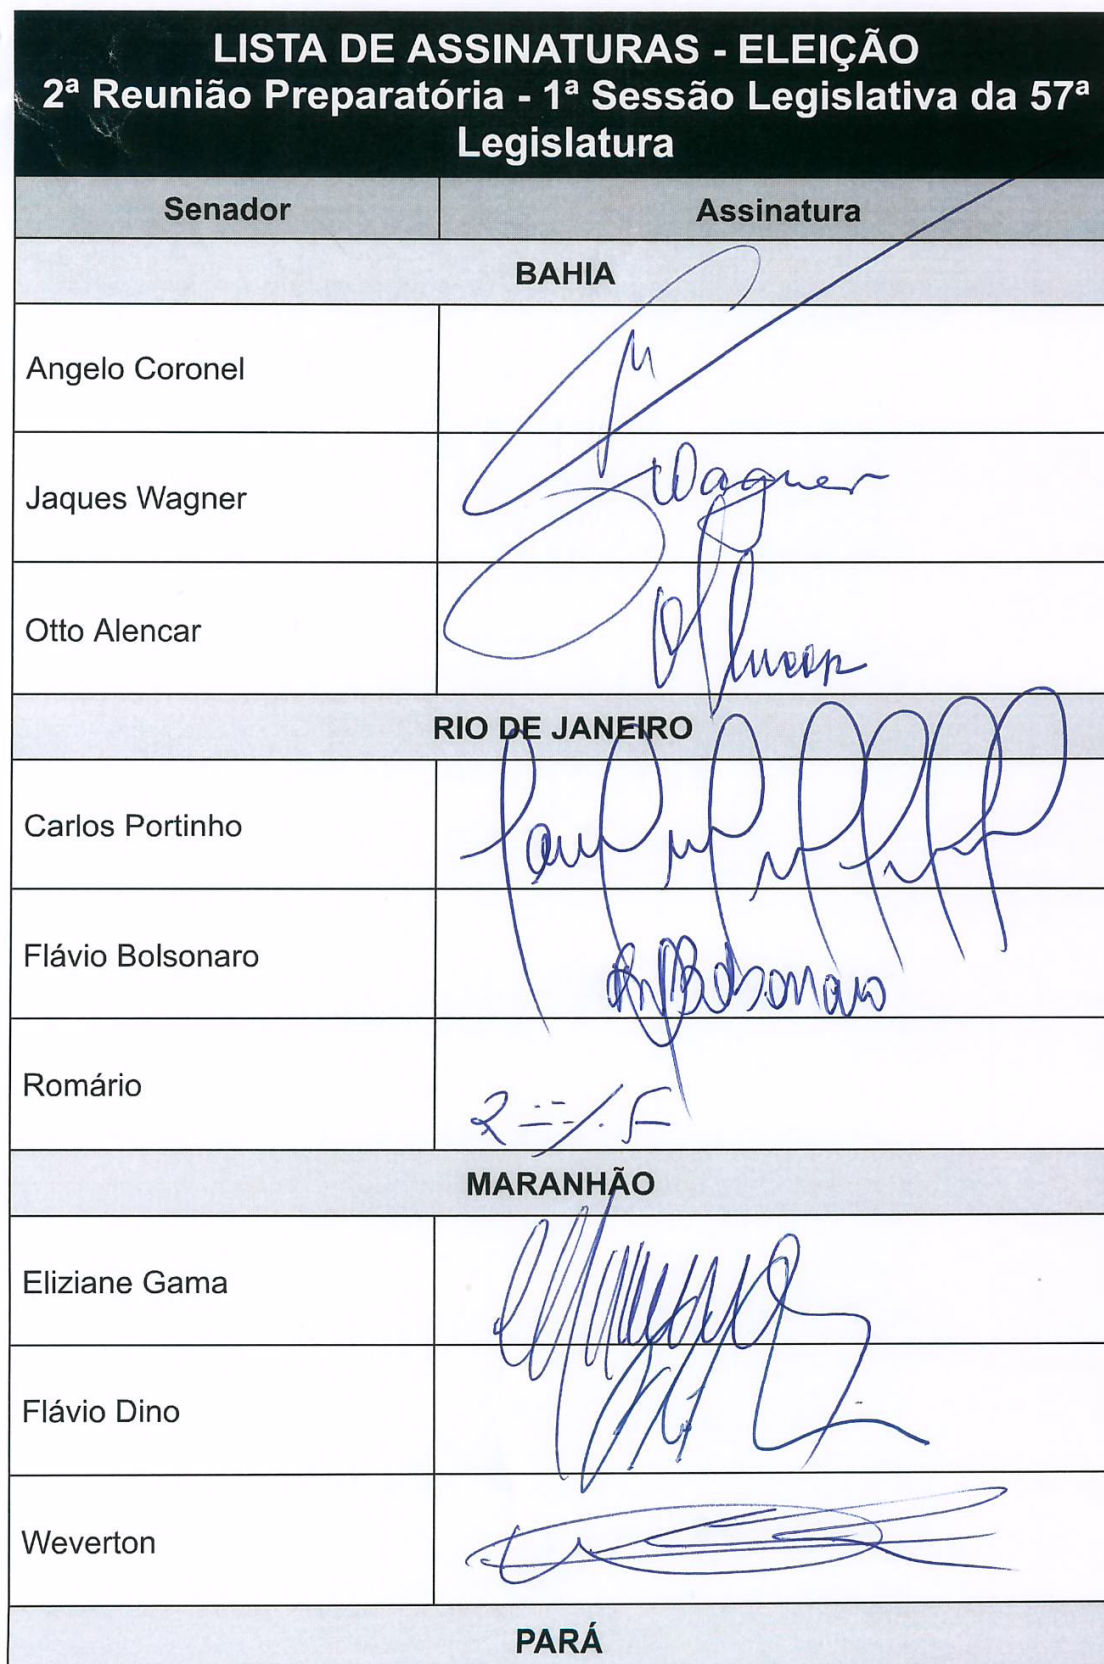 LISTA DE ASSINATURAS - ELEIÇÃO
2ª Reunião Preparatória - 1ª Sessão Legislativa da 57ª
Legislatura
Senador Assinatura
BAHIA
Angelo Coronel
Jaques Wagner Wagner
Otto Alencar
RIO DE JANEIRO
Carlos Portinho
Flávio Bolsonaro Bolsonaro
Romário
MARANHÃO
Eliziane Gama
Flávio Dino
Weverton
PARÁ